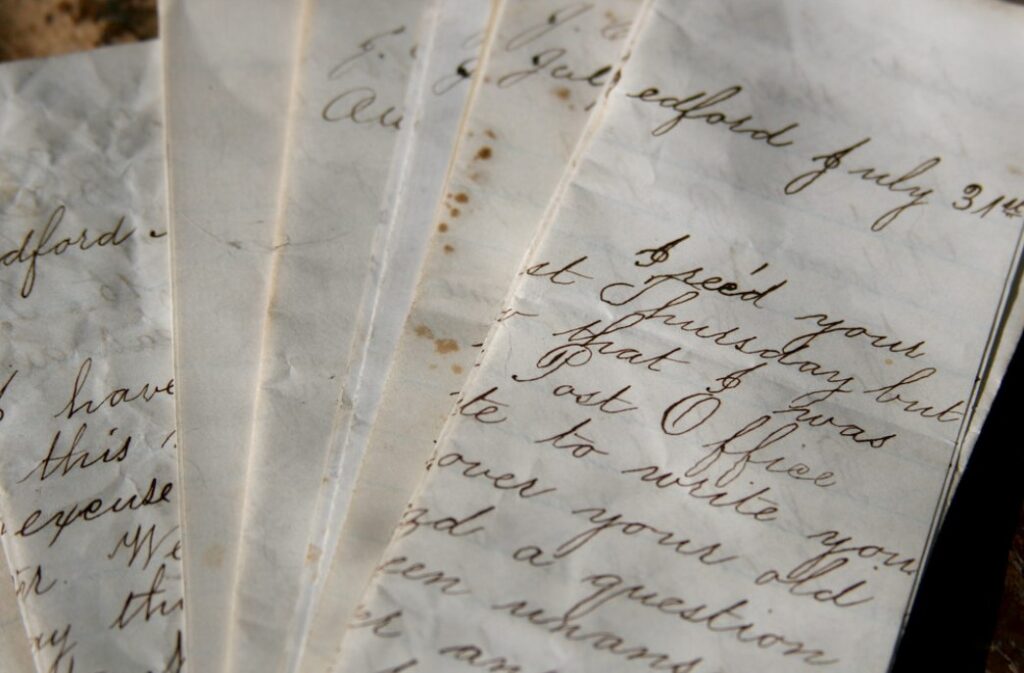 dford
have
this
excuse
We
ay th
Au
J. C
Jul
edford July 31st
I rec'd your
st Thursday but
that I was
Post Office
te to write you
over your old
nd a question
een unans
er an